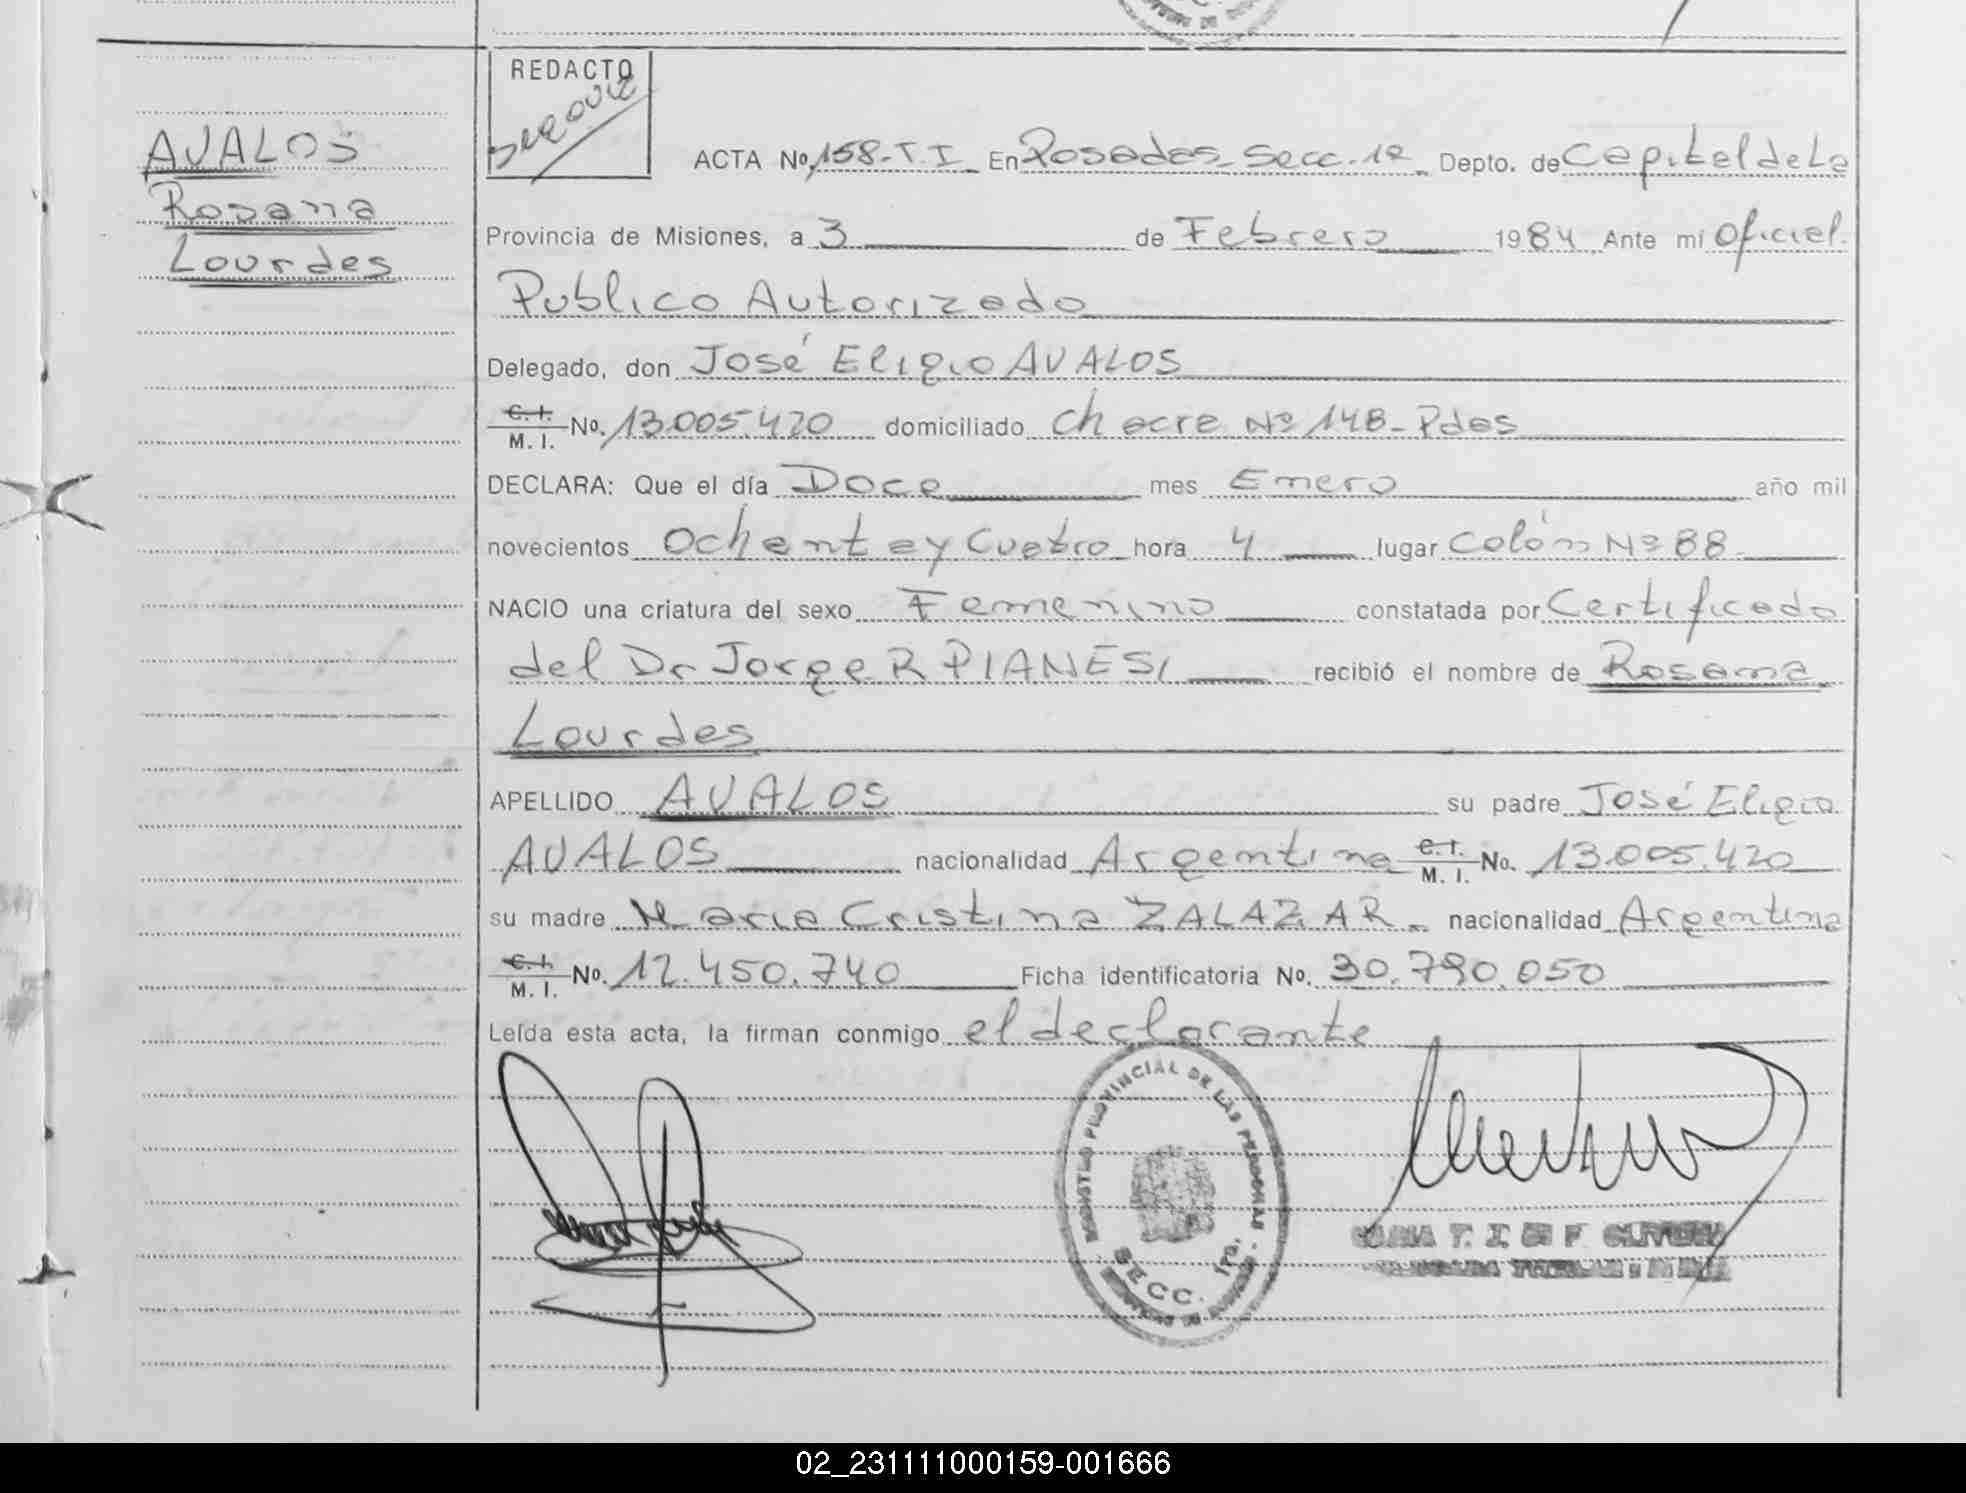 AVALOS
Rosana
Lourdes
REDACTO
ACTA No. 158-T.I En Posadas Secc. 1a Depto. de Capital de La
Provincia de Misiones, a 3 de Febrero 1984 Ante mí Oficial
Publico Autorizado
Delegado, don José Eligio AVALOS
C.I. M.I. No. 13.005.420 domiciliado Chacra Nº 148 - Pdas
DECLARA: Que el día Doce mes Enero año mil
novecientos Ochenta y Cuatro hora 4 lugar Colón Nº 88
NACIO una criatura del sexo Femenino constatada por Certificado
del Dr Jorge R PIANESI recibió el nombre de Rosana
Lourdes
APELLIDO AVALOS su padre José Eligio
AVALOS nacionalidad Argentina C.I. M.I. No. 13.005.420
su madre Maria Cristina ZALAZAR nacionalidad Argentina
C.I. M.I. No. 12.450.740 Ficha identificatoria No. 30.790.050
Leída esta acta, la firman conmigo el declarante
REGISTRO PROVINCIAL DE LAS PERSONAS
SECC. 1ra.
02_231111000159-001666